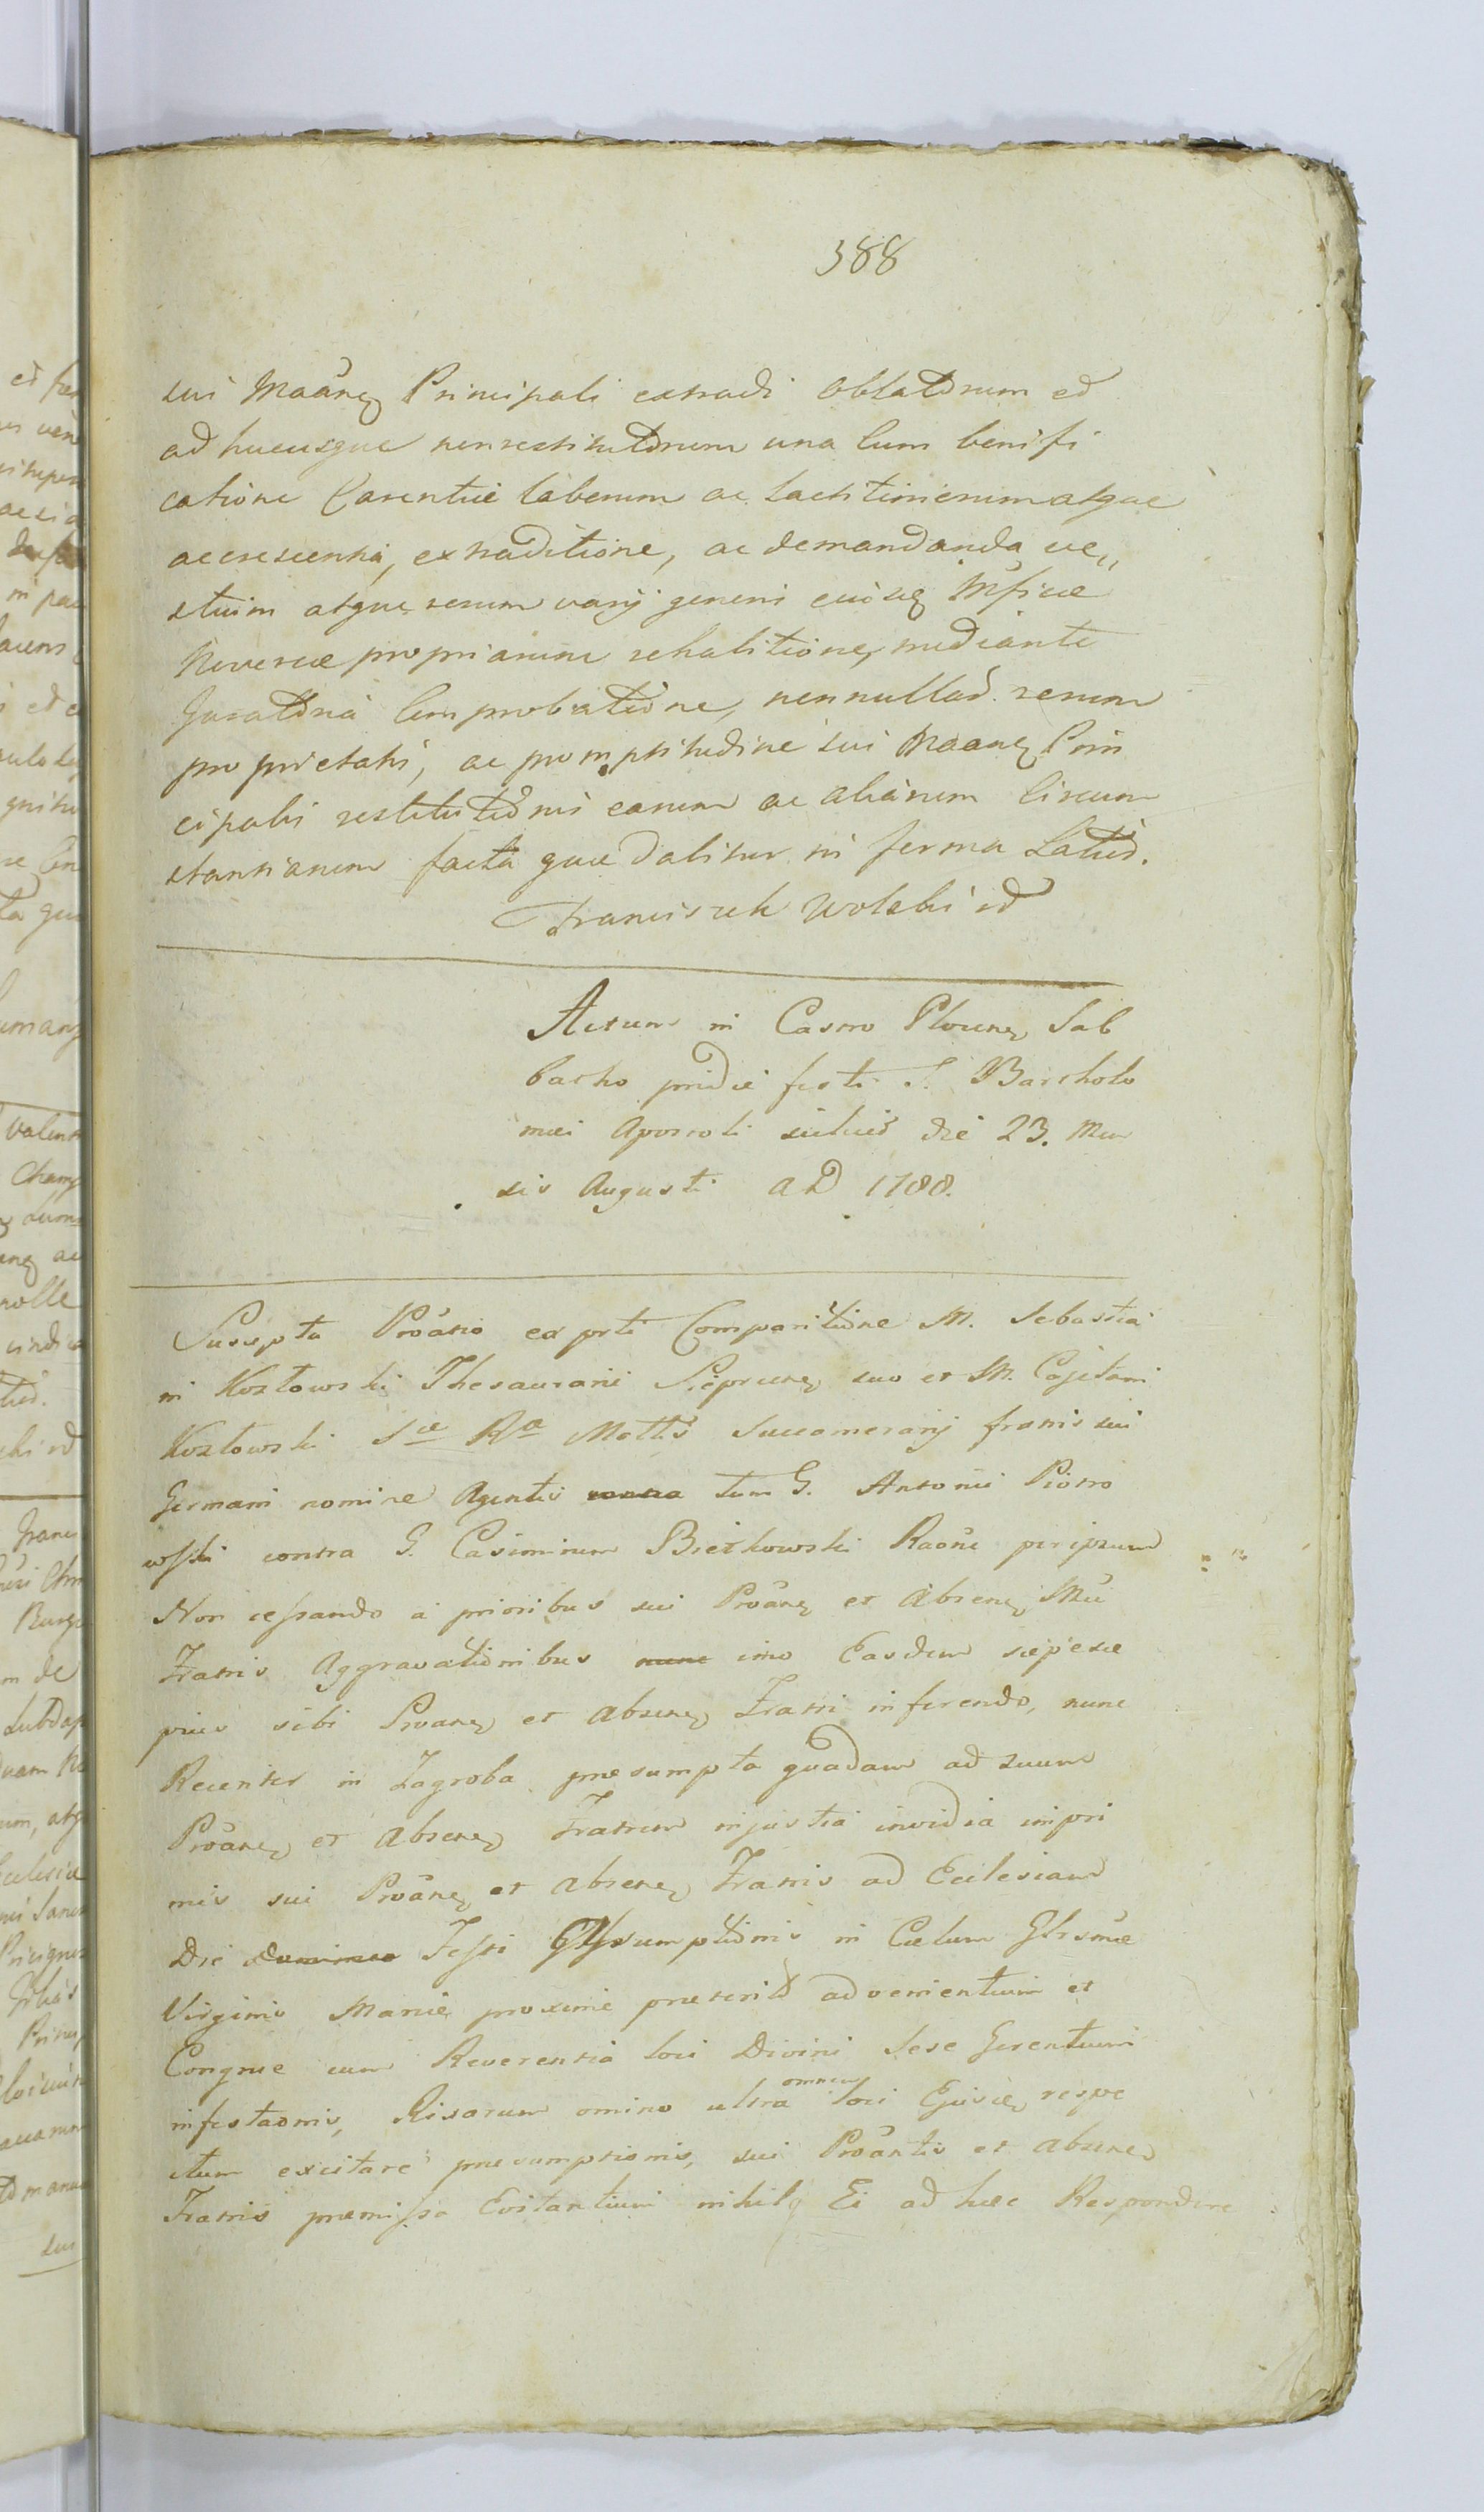 388
sui Maãneȝ Principali extradi oblatorum et
ad hucusque nonrestitutorum una Cum bonifi
catione Carentiæ laborum ac lacticiniorum atque
accrescentia, extraditione, ac demandanda ve„
stium atque rerum varij generis ejusq Mficæ
Noverca propriarum rehabitione, mediante
Juratoria Comprobatione, nonnullar. rerum
proprietatis, ac promptitudine sui Maaneȝ Prin
cipalis restitutionis earum ac aliarum Circum
stantiarum facta quæ dabitur in ferma Latius.
Franciszek Wolski
Actum in Castro Plocneȝ Sab
batho pridie festi S. Bartholo
mæi Apostoli scilicet die 23. Men
sis Augusti A D 1788.
Suscepta Proãtio ex prte Comparitione M. Sebastia
ni Kozłowski Thesaurarii Sieprcneȝ suo et M. Cajetani
Kozłowski Sæ Ræ Mattis Succamerarij fratris sui
Germani nomine Agentis contra tum G. Antonii Piotro
wski contra G. Casimirum Bieżkowski Raõne per ipsum
Non cessando a prioribus sui Proãneȝ et Abseneȝ Mci
Fratris Aggravationibus nunc imo Easdem sæpesæ
pius sibi Proaneȝ et Abseneȝ Fratri inferendo, nunc
Recenter in Zagroba præsumpta quadam ad suum
Proãneȝ et Abseneȝ Fratrem injusta invidia impri
mis sui Proãneȝ et Abseneȝ Fratris ad Ecclesiam
Die Dominco Festi Assumptionis in Cælum Glrsmæ
Virginis Mariæ proxime præterito advenientium et
Congrue cum Reverentia loci Divini Sese Gerentium
infestaonis, Risorum omino ultra omnem loci Ejusceȝ respe
ctum excitare præsumptionis, sui Proãntis et Abseneȝ
Fratris præmissa Evitantium nihilq Ei ad hæc Respondere